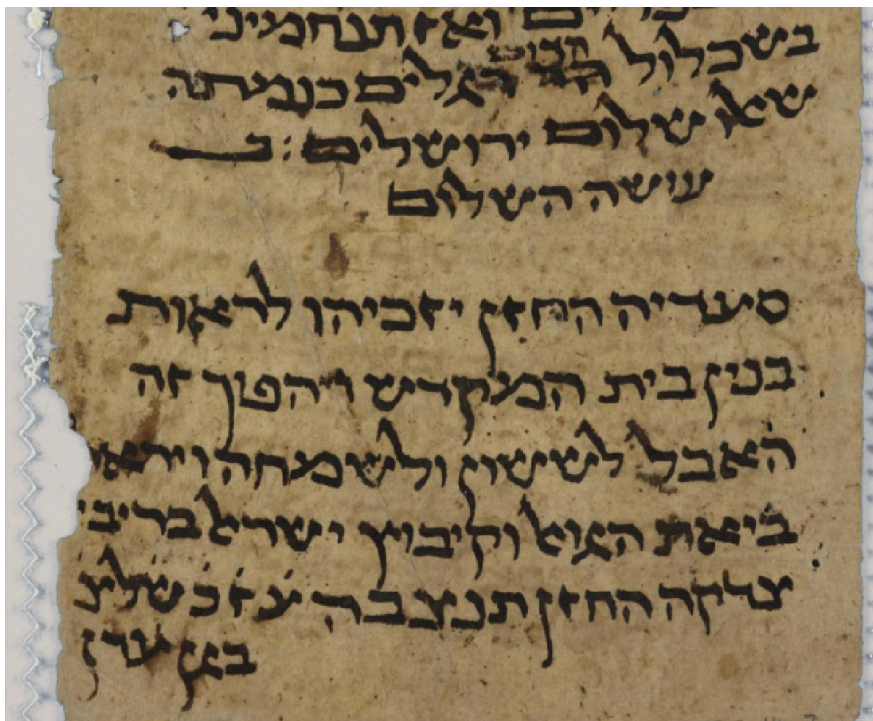 ואז תנחמיני
בשכלול רגלים כנמתה
שאלו שלום ירושלים :
עושה השלום
סעדיה החזן יזכיהו לראות
בנין בית המקדש ויהפוך זה
האבל לששון ולשמחה ויראה
ביאת הגואל וקיבוץ ישראל בריבי
צדקה החזן תנצבה
בגן עדן